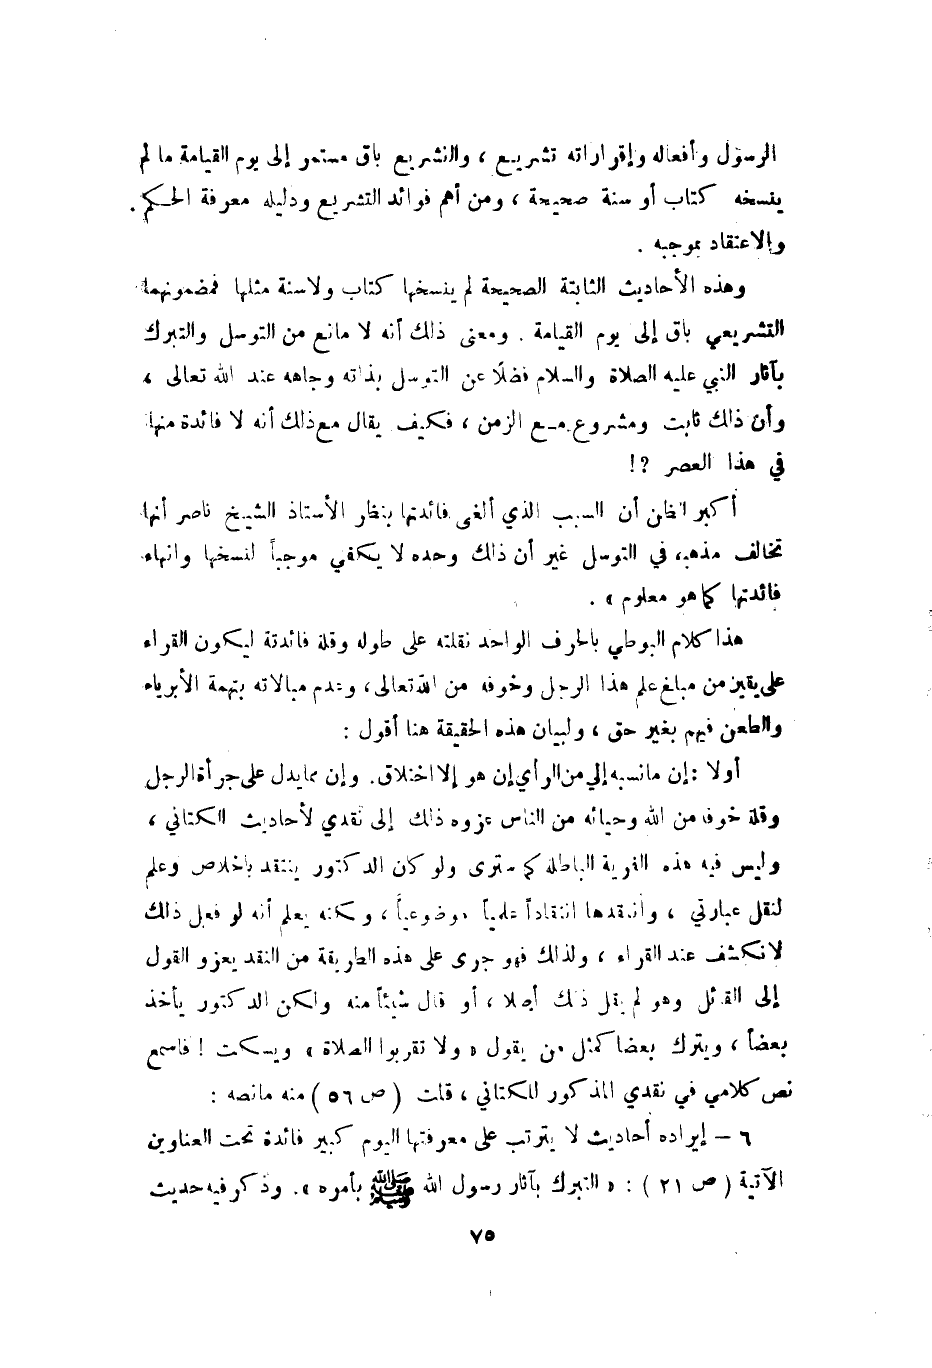 الرسول وأفعاله وإقراراته تشريع ، والتشريع باق مستمر إلى يوم القيامة ما لم
ينسخه كتاب أو سنة صحيحة ، ومن أهم فوائد التشريع ودليله معرفة الحكم .
والاعتقاد بموجبه .
وهذه الأحاديث الثابتة الصحيحة لم ينسخها كتاب ولاسنة مثلها فمضمونها
التشريعي باق إلى يوم القيامة . ومعنى ذلك أنه لا مانع من التوسل والتبرك
بآثار النبي عليه الصلاة والسلام فضلاً عن التوسل بذاته وجاهه عند الله تعالى ،
وأن ذلك ثابت ومشروع مع الزمن ، فكيف يقال مع ذلك أنه لا فائدة منها
في هذا العصر ؟!
أكبر الظن أن السبب الذي ألغى فائدتها بنظر الأستاذ الشيخ ناصر أنها
تخالف مذهبه في التوسل غير أن ذلك وحده لا يكفي موجباً لنسخها وانهاء
فائدتها كما هو معلوم » .
هذا كلام البوطي بالحرف الواحد نقلته على طوله وقلة فائدتة ليكون القراء
على يقين من مبلغ علم هذا الرجل وخوفه من الله تعالى ، وعدم مبالاته بتهمة الأبرياء
والطعن فيهم بغير حق ، ولبيان هذه الحقيقة هنا أقول :
أولا : إن مانسبه إلي من الرأي إن هو إلا اختلاق . وإن مما يدل على جرأة الرجل
وقلة خوفه من الله وحيائه من الناس عزوه ذلك إلى نقدي لأحاديث الكتاني ،
وليس فيه هذه الفرية الباطلة كما سترى ولو كان الدكتور ينتقد باخلاص وعلم
لنقل عبارتي ، وانتقدها انتقاداً علمياً موضوعياً ، ولكنه يعلم أنه لو فعل ذلك
لانكشف عند القراء ، ولذلك فهو جرى على هذه الطريقة من النقد يعزو القول
إلى القائل وهو لم يقل ذلك أصلا ، أو قال شيئاً منه ولكن الدكتور يأخذ
بعضاً ، ويترك بعضا كمثل من يقول « ولا تقربوا الصلاة » ويسكت ! فاسمع
نص كلامي في نقدي المذكور للكتاني ، قلت ( ص ٥٦ ) منه مانصه :
٦ – إيراده أحاديث لا يترتب على معرفتها اليوم كبير فائدة تحت العناوين
الآتية ( ص ٢١ ) : « التبرك بآثار رسول الله ﷺ بأمره » . وذكر فيه حديث
٧٥